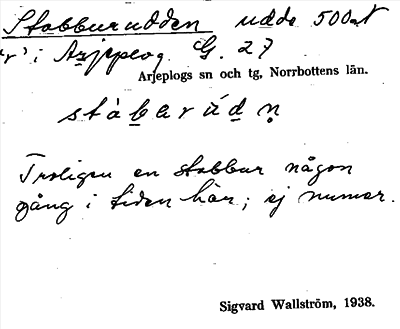 Stabburudden udde 500 m N
"r" i Arjeplog. G. 27
Arjeplogs sn och tg, Norrbottens län.
stàbarúdn̥
Troligen en stabbur någon
gång i tiden här; ej numer.
Sigvard Wallström, 1938.